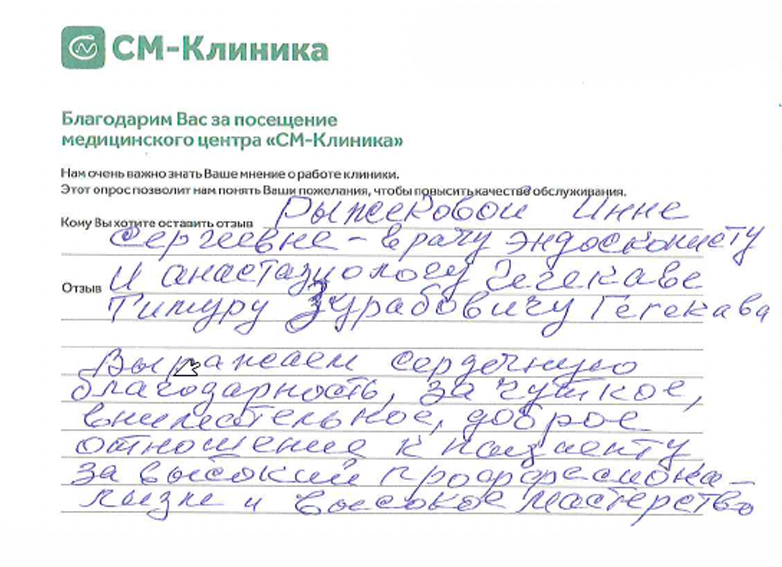 СМ-Клиника
Благодарим Вас за посещение
медицинского центра «СМ-Клиника»
Нам очень важно знать Ваше мнение о работе клиники.
Этот опрос позволит нам понять Ваши пожелания, чтобы повысить качество обслуживания.
Кому Вы хотите оставить отзыв Рыжековой Инне
Сергеевне - врачу эндоскописту
Отзыв И анастазиологу Гегекаве
Тимуру Зурабовичу Гегекава
Выражаем сердечную
благодарность, за чуткое,
внимательное, доброе
отношение к пациенту
за высокий профрессиона-
лизм и высокое мастерство